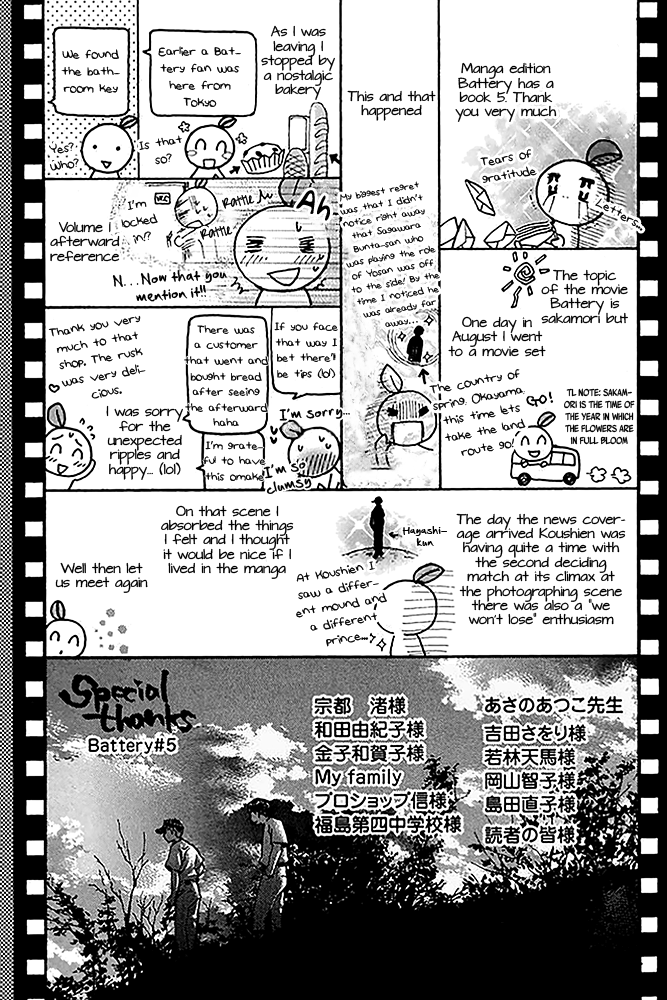 Manga edition
Battery has a
book 5. Thank
you very much
Tears of
gratitude
Letters...
The topic
of the movie
Battery is
sakamori but
One day in
August I went
to a movie set
TL NOTE: SAKAM-
ORI IS THE TIME OF
THE YEAR IN WHICH
THE FLOWERS ARE
IN FULL BLOOM
GO!
The country of
spring. Okayama.
this time lets
take the land
route go!
This and that
happened
My biggest regret
was that I didn't
notice right away
that Sasawara
Bunta-san who
was playing the role
of Yosan was off
to the side! By the
time I noticed he
was already far
away...
As I was
leaving I
stopped by
a nostalgic
bakery
Earlier a Bat-
tery fan was
here from
Tokyo
Is that
so?
We found
the bath-
room key
Yes?
Who?
Ah
Rattle
Rattle
WC
I'm
locked
in!?
N...Now that you
mention it!!
Volume 1
afterward
reference
If you face
that way I
bet there'll
be tips (lol)
There was
a customer
that went and
bought bread
after seeing
the afterward
haha
I'm sorry...
I'm grate-
ful to have
this omake
I'm so
clumsy
Thank you very
much to that
shop. The rusk
was very deli-
cious.
I was sorry
for the
unexpected
ripples and
happy... (lol)
The day the news cover-
age arrived Koushien was
having quite a time with
the second deciding
match at its climax at
the photographing scene
there was also a "we
won't lose" enthusiasm
Hayashi-
kun
At Koushien I
saw a differ-
ent mound and
a different
prince...
On that scene I
absorbed the things
I felt and I thought
it would be nice if I
lived in the manga
Well then let
us meet again
Special
thanks
Battery#5
あさのあつこ先生
吉田さをり様
若林天馬様
岡山智子様
島田直子様
読者の皆様
宗都 渚様
和田由紀子様
金子和賀子様
My family
プロショップ信様
福島第四中学校様